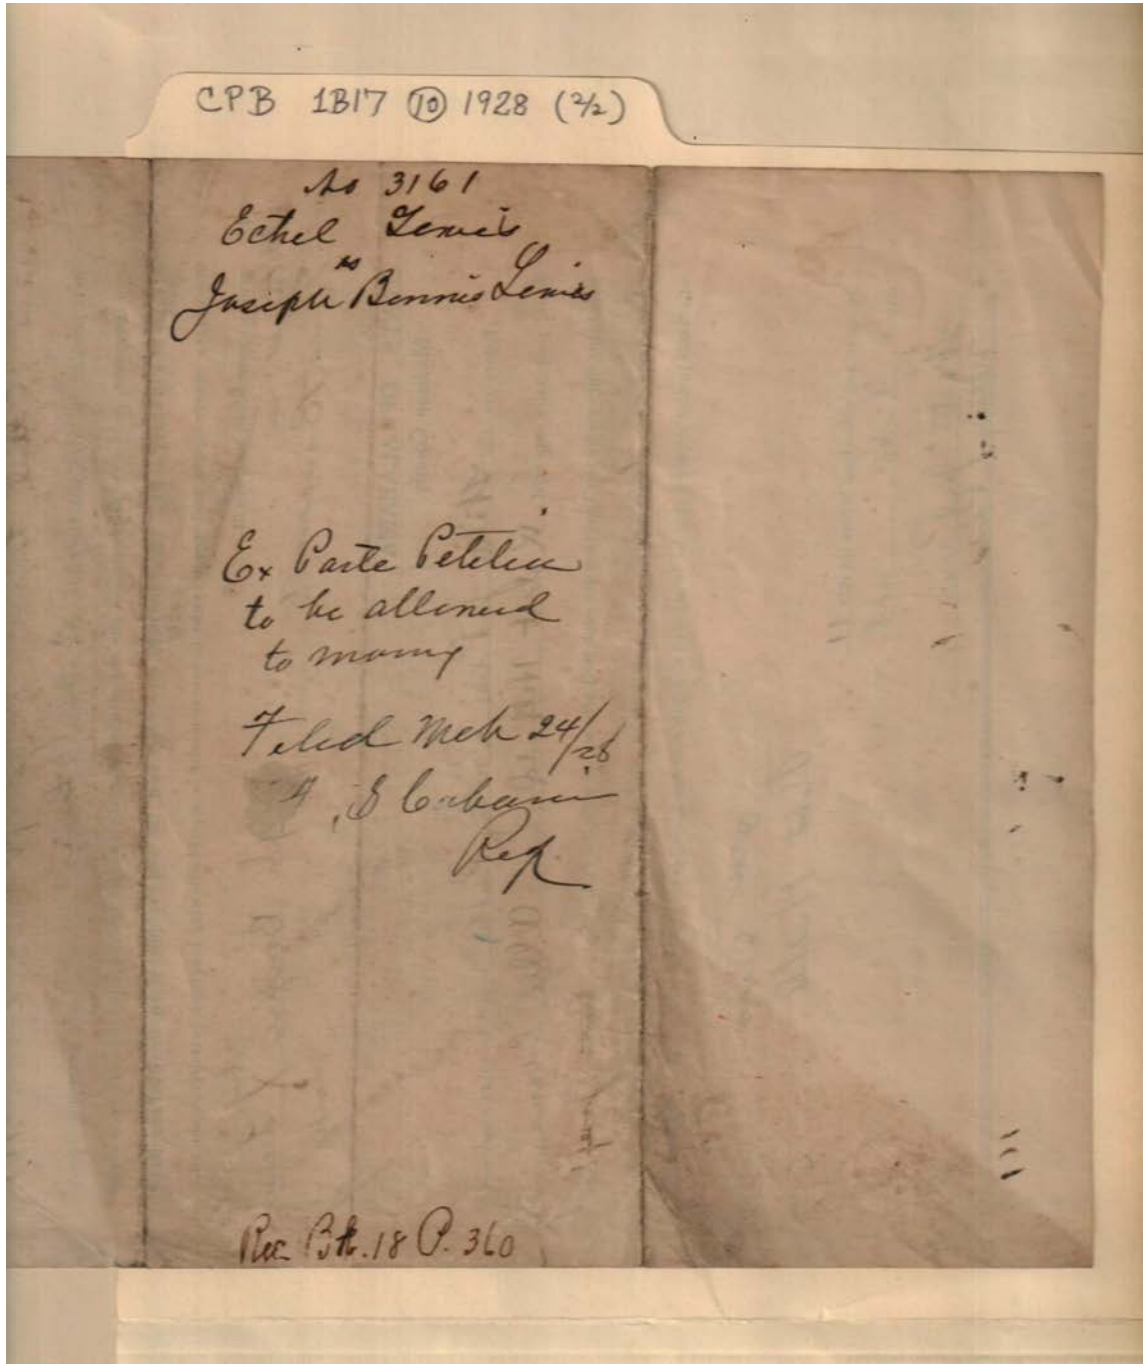 CPB 1B17 ⑩ 1928 (2/2)
No 3161
Ethel Lewis
vs
Joseph Bennie Lewis
Ex Parte Petition
to be allowed
to marry
Filed Mch 24/28
S
Reg
Rec Bk. 18 P. 360